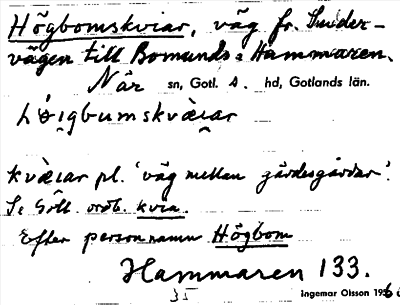 Högbomskviar, väg fr. Smider-
vägen till Bomunds i Hammaren.
När sn, Gotl. A. hd, Gotlands län.
kvìar pl. 'väg mellan gärdesgårdar'.
Se Gotl. ordb. kvia.
Efter personnamn Högbom
Hammaren 133.
35 Ingemar Olsson 195